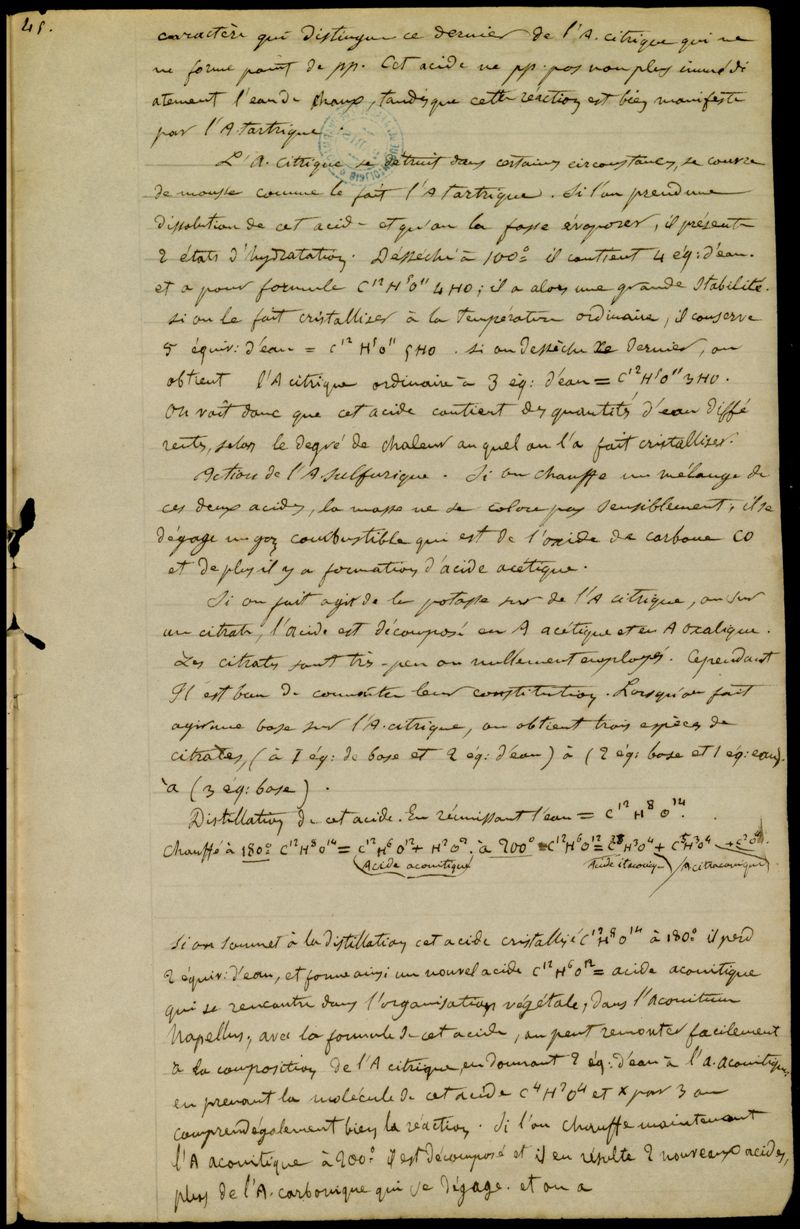 45.
caractère qui distingue ce dernier de l'A. citrique qui ne
ne forme point de pp. Cet acide ne pp. pas non plus immédi
atement l'eau de chaux, tandis que cette réaction est bien manifeste
par l'A. tartrique.
L'A. citrique se détruit dans certaines circonstances, se couvre
de mousse comme le fait l'A tartrique. Si l'on prend une
dissolution de cet acide et qu'on la fasse évaporer, il présente
2 états d'hydratation. Désséché à 100° il contient 4 éq: d'eau.
et a pour formule C¹²H⁵O¹¹ 4HO; il a alors une grande stabilité.
si on le fait cristalliser à la température ordinaire, il conserve
5 équiv: d'eau = C¹²H⁵O¹¹ 5HO. si on dessèche ce dernier, on
obtient l'A citrique ordinaire à 3 éq: d'eau = C¹²H⁵O¹¹ 3HO.
On voit donc que cet acide contient des quantités d'eau diffé
rentes, selon le degré de chaleur auquel on l'a fait cristalliser.
Action de l'A sulfurique. Si on chauffe un mélange de
ces deux acides, la masse ne se colore pas sensiblement, il se
dégage un gaz combustible qui est de l'oxide de carbone CO
et de plus il y a formation d'acide acétique.
Si on fait agir de la potasse sur de l'A citrique, ou sur
un citrate, l'acide est décomposé en A acétique et en A oxalique.
Les citrates sont très-peu ou nullement employés. Cependant
Il est bon de connaitre leur constitution. Lorsqu'on fait
agir une base sur l'A. citrique, on obtient trois espèces de
citrates, (à 1 éq: de base et 2 éq: d'eau) à (2 éq: base et 1 éq: eau).
à (3 éq: base).
Distillation de cet acide. En réunissant l'eau = C¹²H⁸O¹⁴.
chauffé à 180° C¹²H⁸O¹⁴ = C¹²H⁶O¹² + H²O². à 200° = C¹²H⁶O¹² =
Acide aconitique
si on soumet à la distillation cet acide cristallisé C¹²H⁸O¹⁴ à 180° il perd
2 équiv: d'eau, et forme ainsi un nouvel acide C¹²H⁶O¹² = acide aconitique
qui se rencontre dans l'organisation végétale, dans l'aconitum
Napellus, avec la formule de cet acide, on peut remonter facilement
à la composition de l'A citrique, en donnant 2 éq: d'eau à l'A. aconitique,
en prenant la molécule de cet acide C⁴H²O⁴ et x par 3 on
comprend également bien la réaction. Si l'on chauffe maintenant
l'A aconitique à 200° il est décomposé et il en résulte 2 nouveaux acides,
plus de l'A. carbonique qui se dégage. et on a